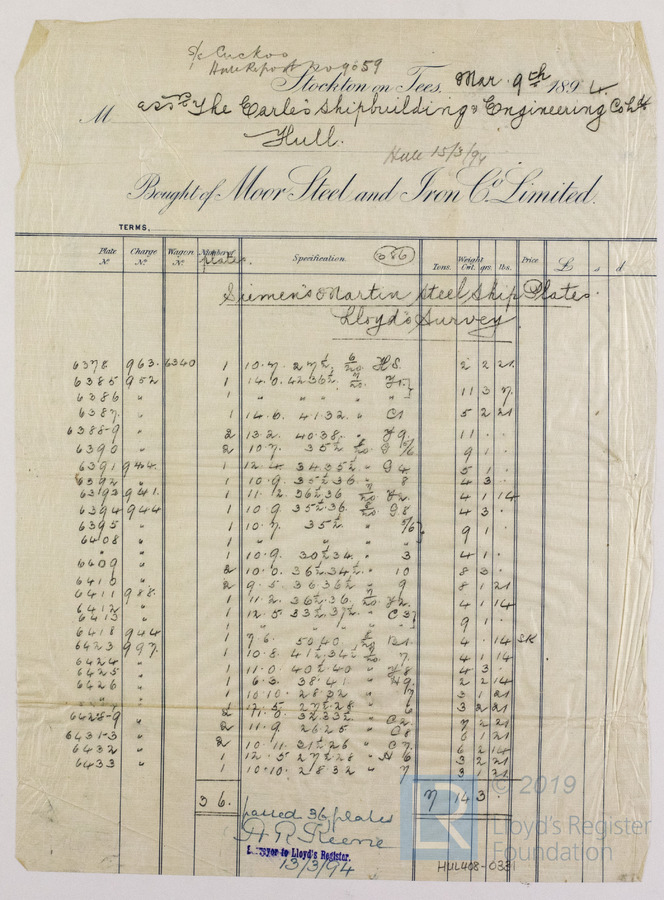 S/S Cuckoo
Hull Report No 9059
Stockton on Tees, Mar. 9th 1894.
Messrs The Earle's Shipbuilding & Engineering Co Ltd
Hull.
Hull 15/3/94
Bought of Moor Steel and Iron Co. Limited.
TERMS,
Plate No. Charge No. Wagon No. Number of plates. Specification. 686 Tons. Weight Cwt. qrs. lbs. Price £ s d
Siemen's Martin Steel Ship Plates.
Lloyd's Survey
6378 963. 6340 1 10.7. 27½. 6/20. H8. 2 2 21.
6385 952 1 14.0. 42.36½. 7/20.
6386 " 1 " " " " 11 3 7.
6387. " 1 14.0. 41.32. " C1 5 2 21
6388-9 " 2 13.2. 40.38. " 9. 11 . .
6390 " 2 10.7. 35½ 5/6 9 1 .
6391 944. 1 12.4. 34.35½ " 4 5 1 .
6392 " 1 10.9. 35½.36. " 8 4 3 .
6393 941. 1 11.2 36½.36 7/20 2. 4 1 14
6394 944 1 10.9. 35½.36. 8/20. 8 4 3 .
6395 " 1 10.7. 35½ " 5/6
6408 " 1 " " " 9 1 .
" " 1 10.9. 30½.34. " 3 4 1 .
6409 " 2 10.0. 36½.34½ " 10 8 3 .
6410 " 2 9.5. 36.36½ " 9 8 1 21
6411 988. 1 11.2. 36½.36. 7/20. 2. 4 1 14
6412 " 1 12.5 33½.37½ " C3
6413 " 1 " " " 9 1 .
6418 944 1 7.6. 50.40. 8/20 4 . 14
6423 997. 1 10.8. 41½.34½ 7/20. 7. 4 1 14
6424 " 1 11.0. 40½.40 " 8 4 3 .
6425 " 1 6.3. 38.41. " 9. 2 2 14
6426 " 1 10.10. 28.32 " 7 3 1 21
" " 1 12.5. 27½.28 " 6 3 2 21
6428-9 " 2 11.0. 32.33½ " C2. 7 2 21
2 11.9. 26.25 " C8 6 1 21
6431-3 " 2 10.11. 31½.26 " C7. 6 2 14
6432 " 1 12.5. 27½.28 " 6 3 2 21
6433 " 1 10.10. 28.32 " 7 3 1 21
36. 7 14 3 .
passed 36 plates
Surveyor to Lloyd's Register.
13/3/94
© 2019
Lloyd's Register
Foundation
HUL408-0331